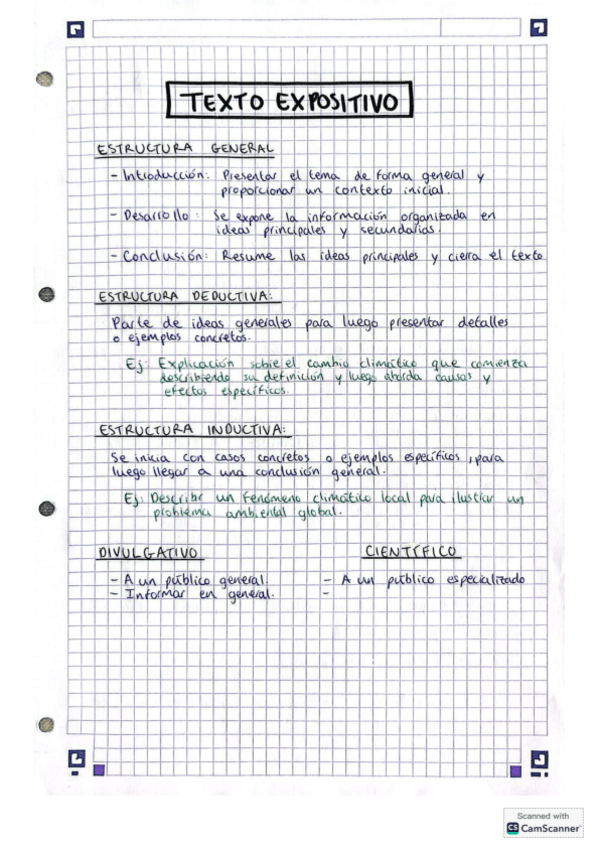 TEXTO EXPOSITIVO
ESTRUCTURA GENERAL
- Introducción: Presentar el tema de forma general y
proporcionar un contexto inicial.
- Desarrollo: Se expone la información organizada en
ideas principales y secundarias.
- Conclusión: Resume las ideas principales y cierra el texto
ESTRUCTURA DEDUCTIVA:
Parte de ideas generales para luego presentar detalles
o ejemplos concretos.
Ej: Explicación sobre el cambio climático que comienza
describiendo su definición y luego aborda causas y
efectos específicos.
ESTRUCTURA INDUCTIVA:
Se inicia con casos concretos o ejemplos específicos, para
luego llegar a una conclusión general.
Ej: Describir un fenómeno climático local para ilustrar un
problema ambiental global.
DIVULGATIVO
- A un público general.
- Informar en general.
CIENTÍFICO
- A un público especializado
-
Scanned with
CS CamScanner